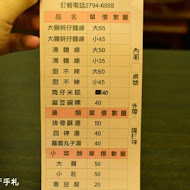 訂餐電話2794-6888
品名 單價 數量
大腸蚵仔麵線 大65
大腸蚵仔麵線 小45
清麵線 大50
清麵線 小35
甜不辣 大50
甜不辣 小35
筒仔米糕 40
麻豆碗粿 40
湯類 單價 數量
排骨酥湯 50
四神湯 40
蘿蔔丸子湯 40
小菜類 單價 數量
大肚 50
小肚 50
魯豆腐 20
內用
桌號
外帶
請打勾
手札